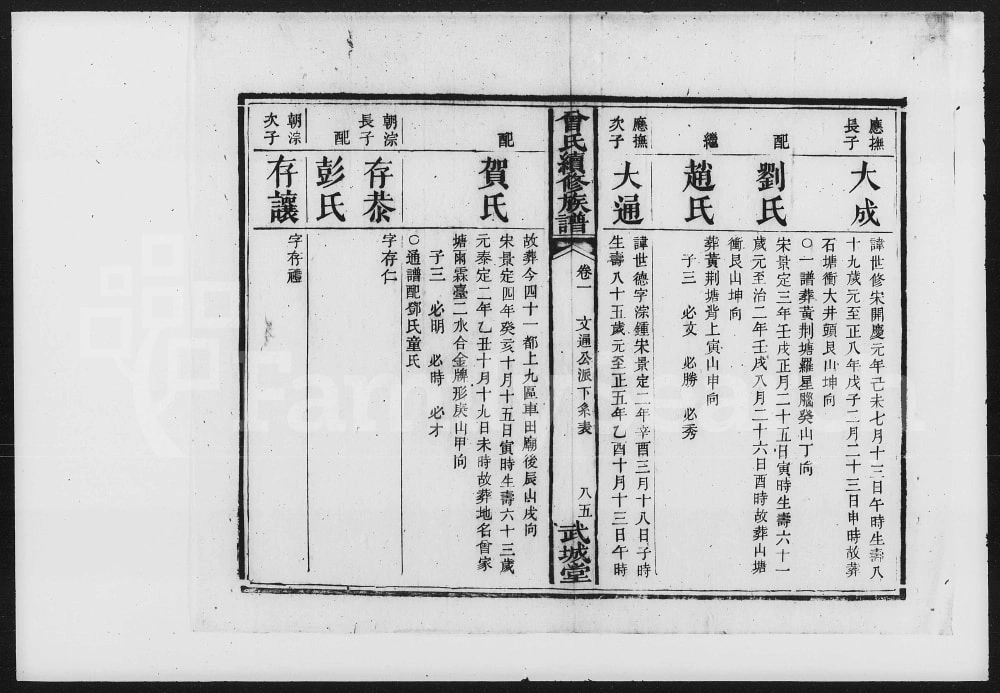 應撫
長子
大成
諱世修宋開慶元年己未七月十三日午時生壽八
十九歲元至正八年戊子二月二十三日申時故葬
石塘衝大井頭艮山坤向
○一譜葬黃荆塘羅星腦癸山丁向
配
劉氏
宋景定三年壬戌正月二十五日寅時生壽六十一
歲元至治二年壬戌八月二十六日酉時故葬山塘
衝艮山坤向
繼
趙氏
葬黃荆塘背上寅山申向
子三 必文 必勝 必秀
應撫
次子
大通
諱世德字淙鍾宋景定二年辛酉三月十八日子時
生壽八十五歲元至正五年乙酉十月十三日午時
曾氏續修族譜
卷一 文通公派下系表
八五
武城堂
故葬今四十一都上九區車田廟後辰山戌向
配
賀氏
宋景定四年癸亥十月十五日寅時生壽六十三歲
元泰定二年乙丑十月十九日未時故葬地名曾家
塘雨霖臺二水合金牌形庚山甲向
子三 必明 必時 必才
○通譜配鄧氏童氏
朝淙
長子
存恭
字存仁
配
彭氏
朝淙
次子
存讓
字存禮